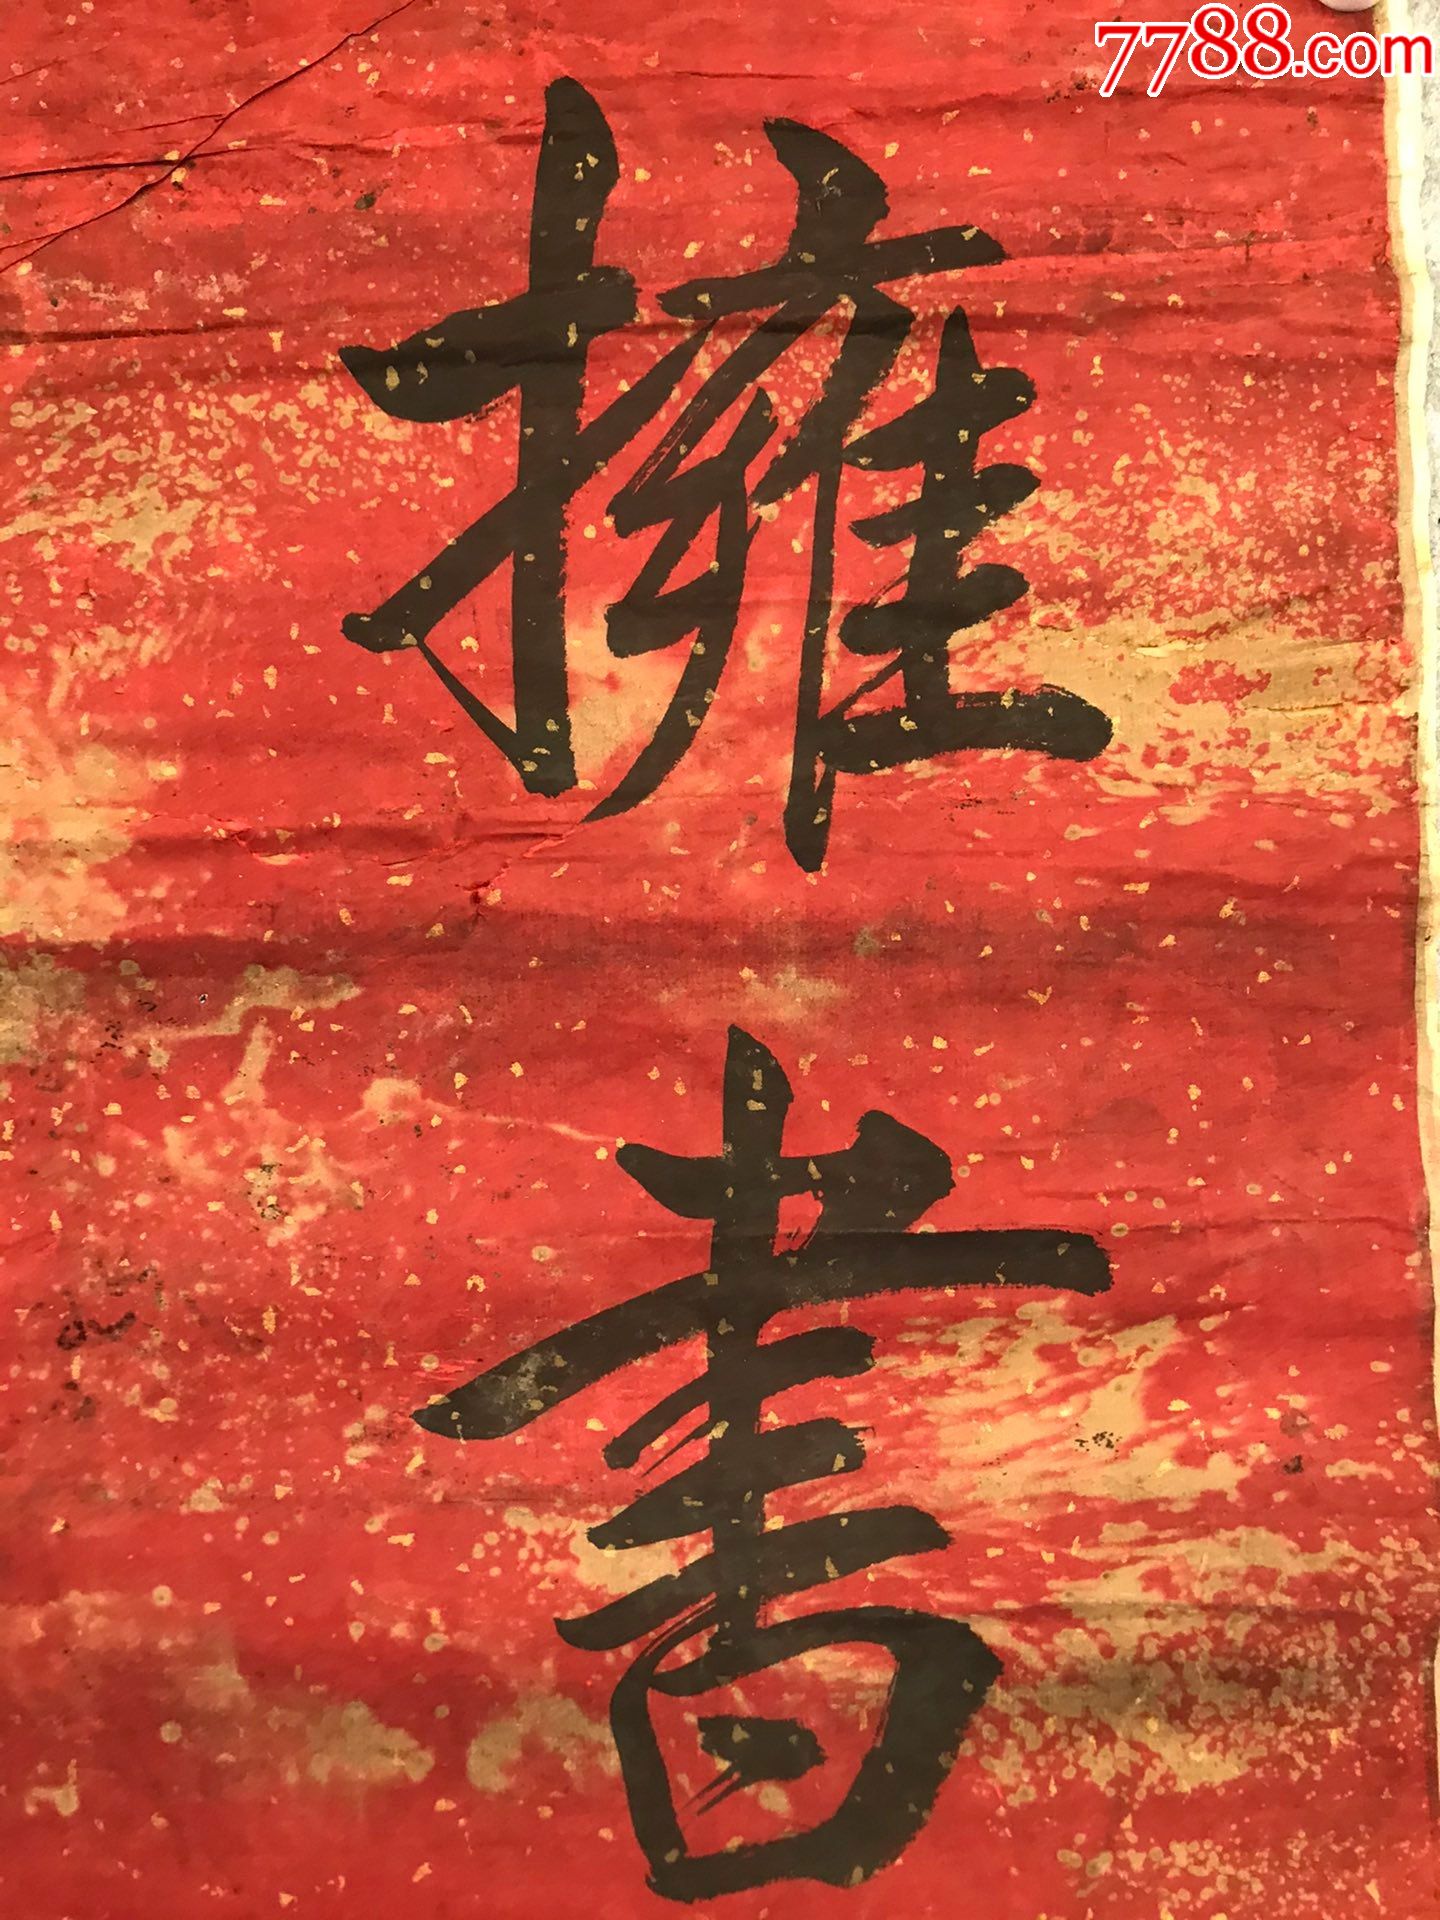 7788.com
擁
書